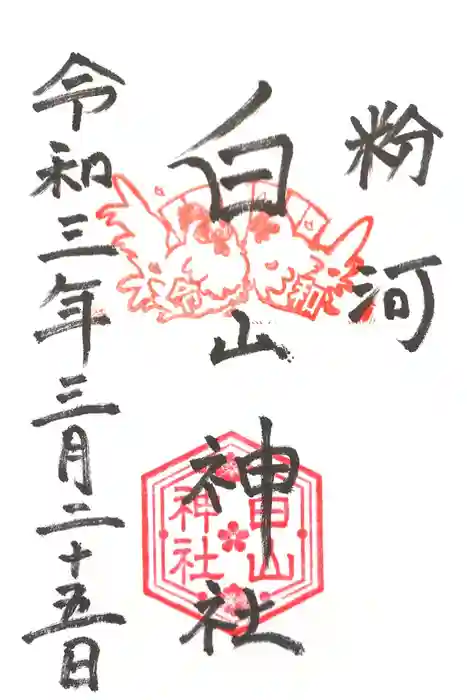 粉河
白山神社
令和三年三月二十五日
令和
白山
神社